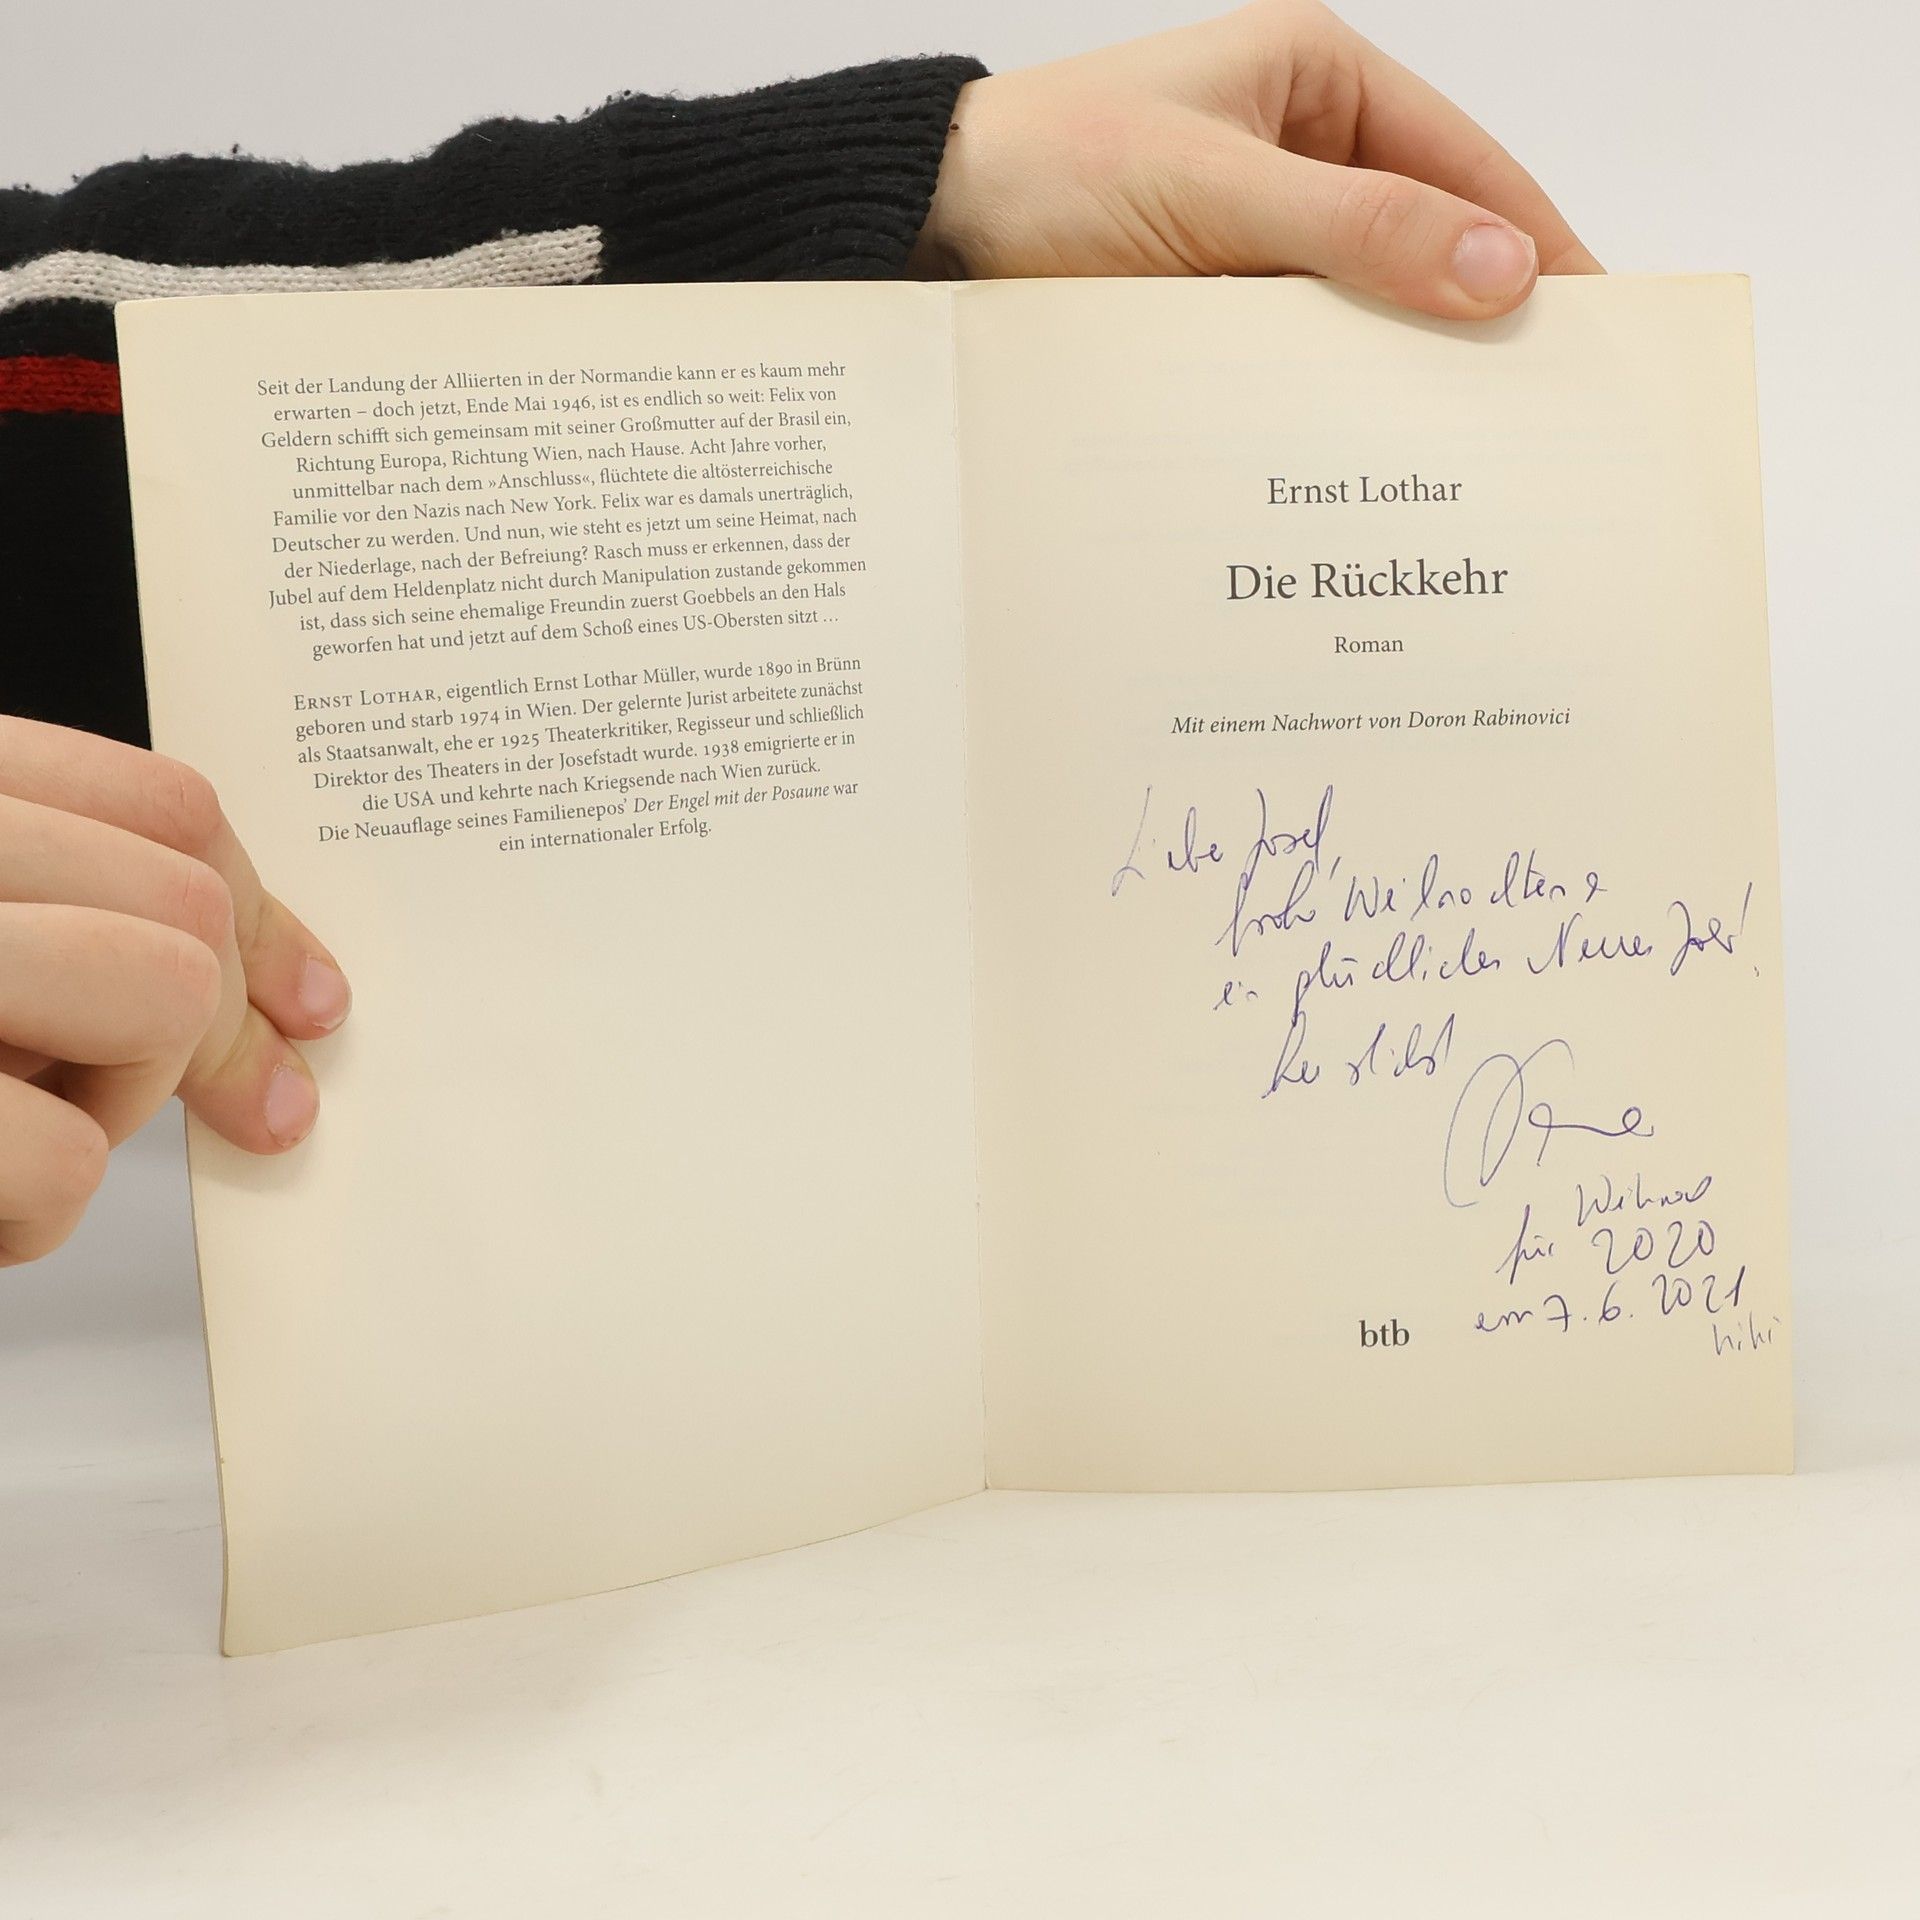 Seit der Landung der Alliierten in der Normandie kann er es kaum mehr
erwarten – doch jetzt, Ende Mai 1946, ist es endlich so weit: Felix von
Geldern schifft sich gemeinsam mit seiner Großmutter auf der Brasil ein,
Richtung Europa, Richtung Wien, nach Hause. Acht Jahre vorher,
unmittelbar nach dem »Anschluss«, flüchtete die altösterreichische
Familie vor den Nazis nach New York. Felix war es damals unerträglich,
Deutscher zu werden. Und nun, wie steht es jetzt um seine Heimat, nach
der Niederlage, nach der Befreiung? Rasch muss er erkennen, dass der
Jubel auf dem Heldenplatz nicht durch Manipulation zustande gekommen
ist, dass sich seine ehemalige Freundin zuerst Goebbels an den Hals
geworfen hat und jetzt auf dem Schoß eines US-Obersten sitzt ...
ERNST LOTHAR, eigentlich Ernst Lothar Müller, wurde 1890 in Brünn
geboren und starb 1974 in Wien. Der gelernte Jurist arbeitete zunächst
als Staatsanwalt, ehe er 1925 Theaterkritiker, Regisseur und schließlich
Direktor des Theaters in der Josefstadt wurde. 1938 emigrierte er in
die USA und kehrte nach Kriegsende nach Wien zurück.
Die Neuauflage seines Familienepos' Der Engel mit der Posaune war
ein internationaler Erfolg.
Ernst Lothar
Die Rückkehr
Roman
Mit einem Nachwort von Doron Rabinovici
Liebe Josef,
frohe Weihnachten &
ein glückliches Neues Jahr!
herzlichst
für Weihnac
2020
am 7.6.2021
hihi
btb